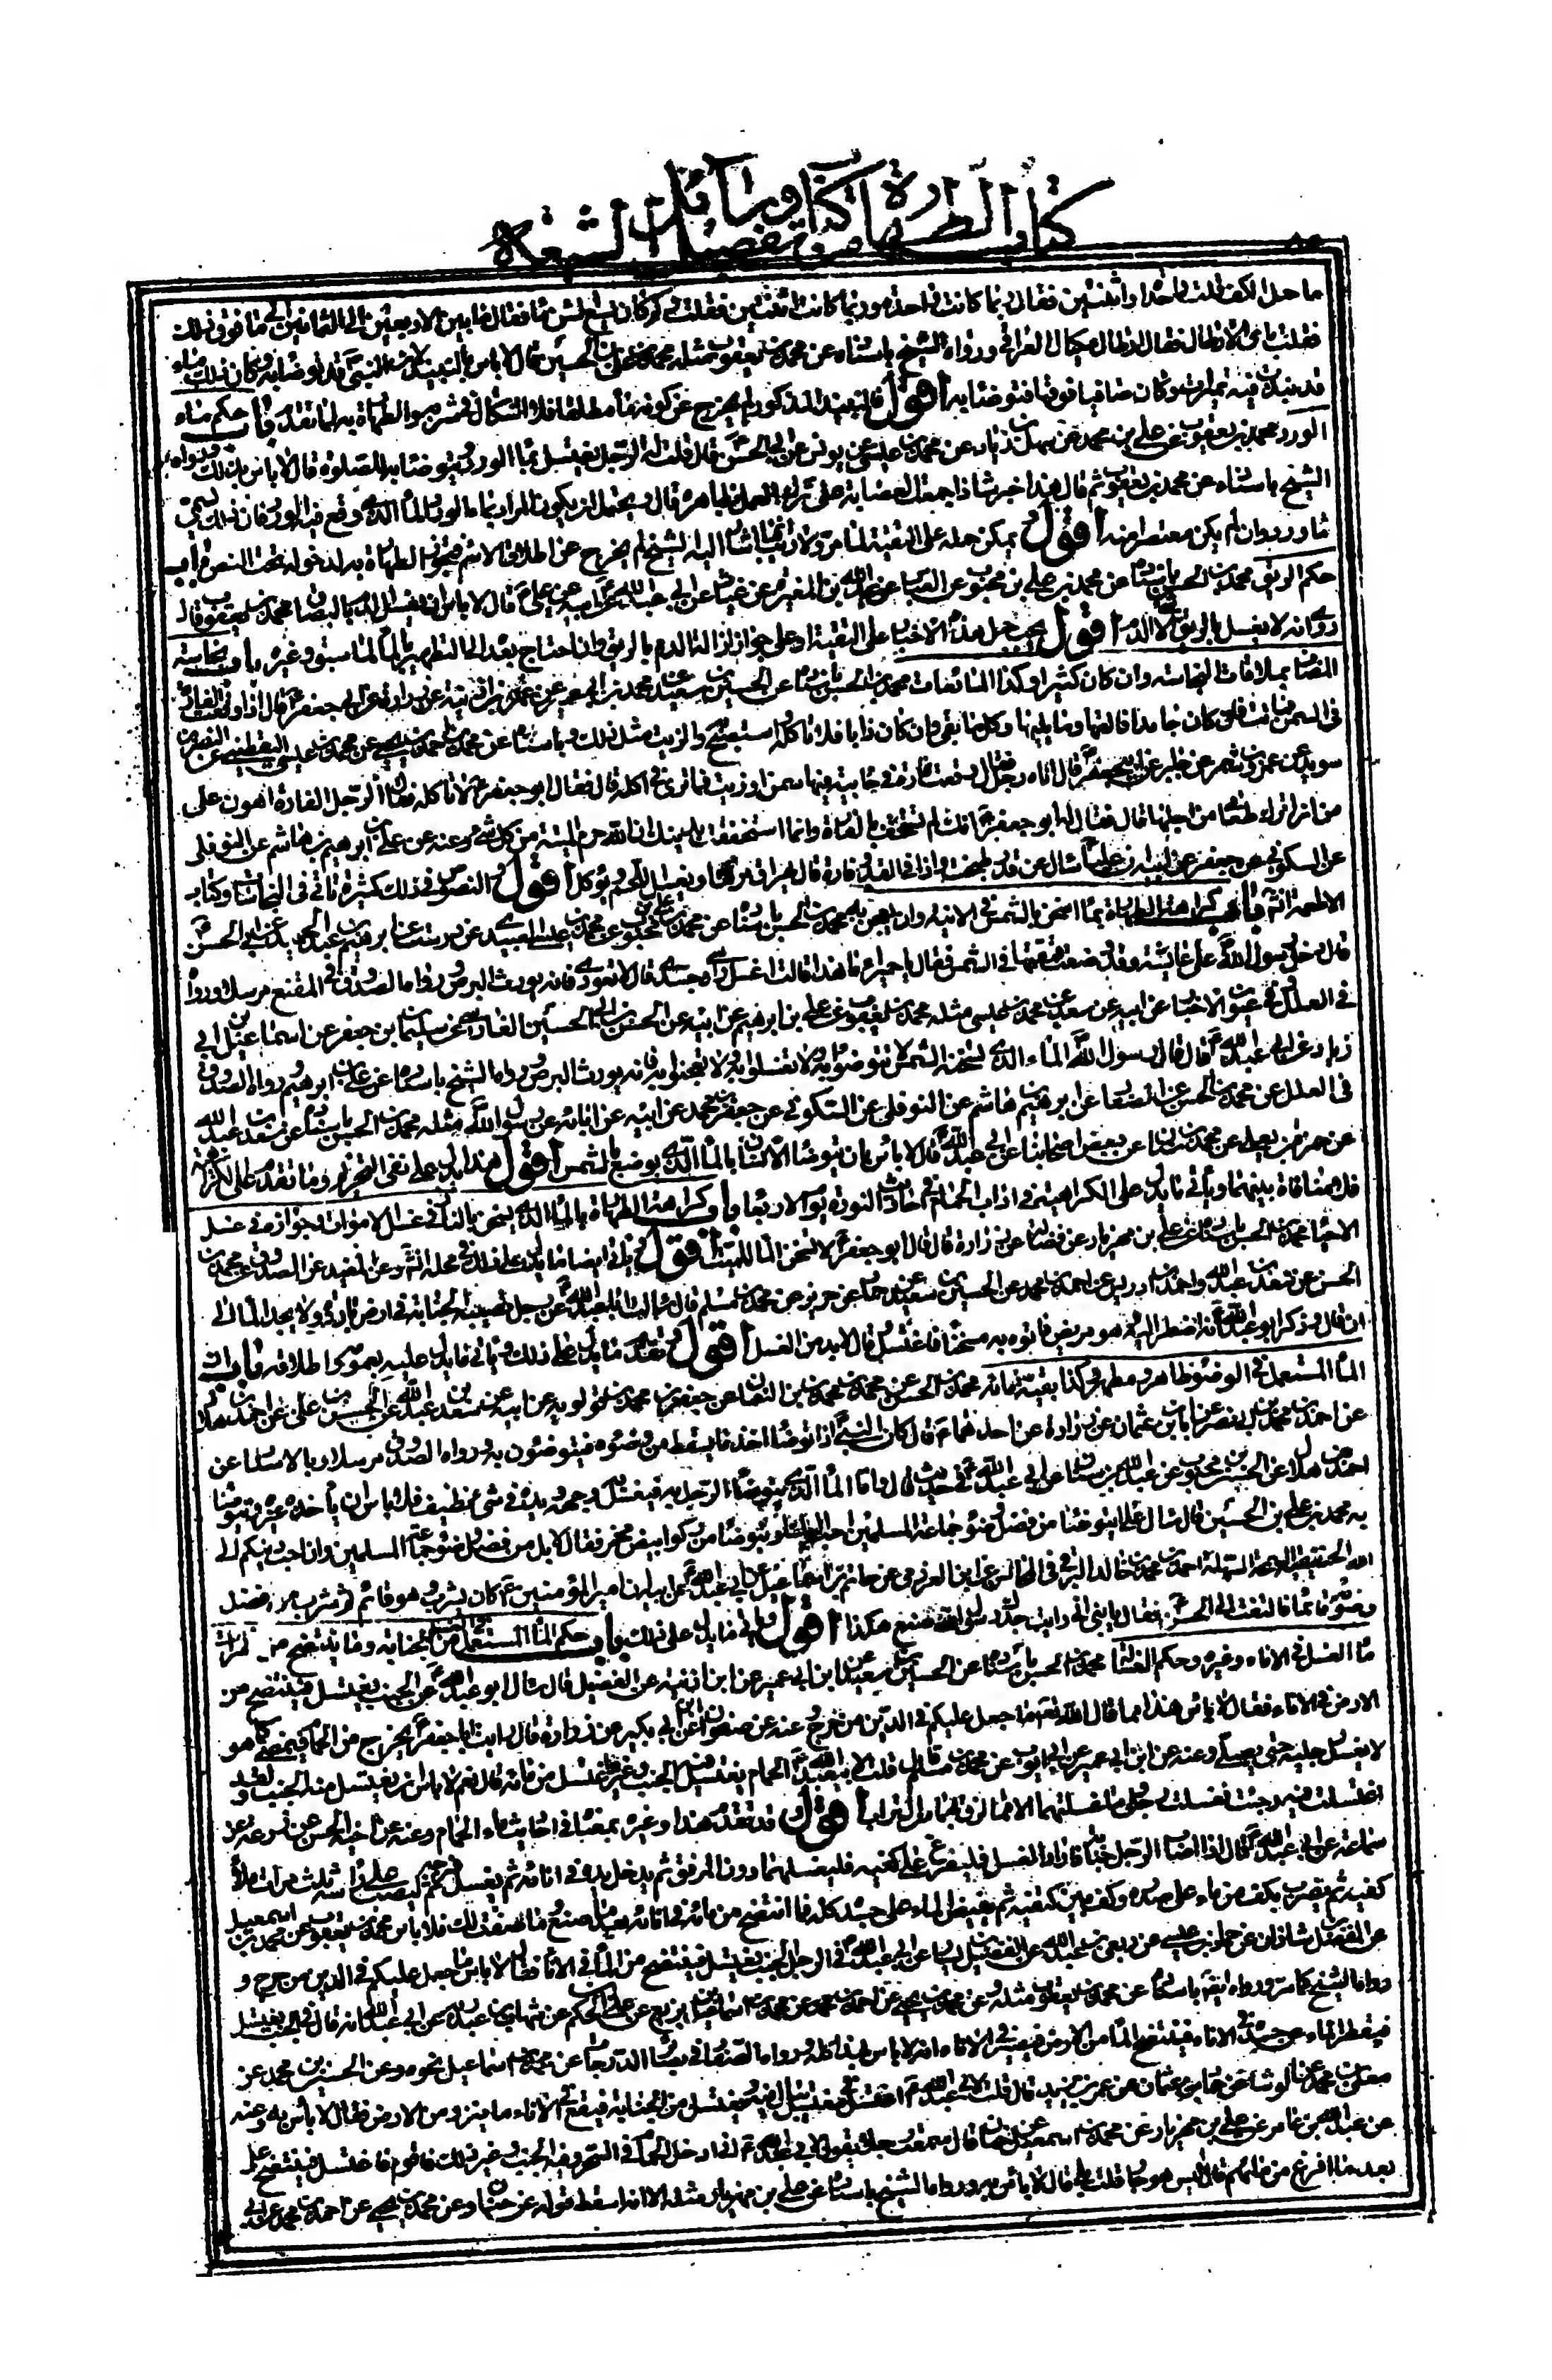 كتاب الطهارة من كتاب وسائل
تفصيل الشيعة
ما حمل الكف قلت واحدة او اثنتين فقال ربما كانت واحدة وربما كانت اثنتين فقلت وكم كان يسع الشن ماء فقال ما بين الاربعين الى الثمانين الى ما فوق ذلك
فقلت باى الارطال فقال ارطال مكيال العراق ورواه الشيخ باسناده عن محمد بن يعقوب مثله محمد بن على بن الحسين قال لا باس بالنبيذ لان النبى قد توضأ به وكان ذلك ماء
قد نبذت فيه تميرات وكان صافيا فوقها فتوضأ به اقول فالنبيذ المذكور لم يخرج عن كونه ماء مطلقا فلا اشكال فى شربه والطهارة به لما تقدم باب حكم ماء
الورد محمد بن يعقوب عن على بن محمد عن سهل بن زياد عن محمد بن عيسى عن يونس عن ابى الحسن قال قلت له الرجل يغتسل بماء الورد ويتوضأ به للصلوة قال لا باس بذلك ورواه
الشيخ باسناده عن محمد بن يعقوب ثم قال هذا خبر شاذ اجمعت العصابة على ترك العمل بظاهره قال ويحتمل ان يكون المراد بماء الورد الماء الذى وقع فيه الورد فان ذلك يسمى
ماء ورد وان لم يكن معتصرا منه اقول يمكن حمله على التقية لما مر ولا ريب ان ما اشار اليه الشيخ لم يخرج عن اطلاق الاسم فتجوز الطهارة به لدخوله تحت النص باب
حكم الريق محمد بن الحسن باسناده عن محمد بن على بن محبوب عن العباس عن عبد الله بن المغيرة عن غياث عن ابى عبد الله عن ابيه عن على قال لا باس ان يغسل الدم بالبصاق محمد بن يعقوب قال
روى انه لا يغسل بالريق الا الدم اقول يجب حمل هذه الاخبار على التقية او على جواز ازالة الدم بالريق وان احتاج بعدها الى التطهير بالماء لما سبق وغيره باب نجاسة
المضاف بملاقات النجاسة وان كان كثيرا وكذا المائعات محمد بن الحسن باسناده عن الحسين بن سعيد عن محمد بن ابى عمير عن عمر بن اذينة عن زرارة عن ابى جعفر قال اذا وقعت الفارة
فى السمن فماتت فان كان جامدا فالقها وما يليها وكل ما بقى وان كان ذائبا فلا تاكله واستصبح به والزيت مثل ذلك وباسناده عن محمد بن احمد بن يحيى عن محمد بن عيسى اليقطينى عن النضر بن
سويد عن عمرو بن شمر عن جابر عن ابى جعفر قال اتاه رجل فقال وقعت فارة فى خابية فيها سمن او زيت فما ترى فى اكله قال فقال ابو جعفر لا تاكله فقال له الرجل الفارة اهون على
من ان اترك طعامى من اجلها قال فقال له ابو جعفر انك لم تستخف بالفارة وانما استخففت بدينك ان الله حرم الميتة من كل شىء وعنه عن على بن ابرهيم بن هاشم عن النوفلى
عن السكونى عن جعفر عن ابيه ان عليا سئل عن قدر طبخت واذا فى القدر فارة قال يهراق مرقها ويغسل اللحم ويؤكل اقول والنصوص فى ذلك كثيرة تاتى فى النجاسات وكتاب
الاطعمة باب كراهة الطهارة بماء اسخن بالشمس فى الانية وان يعجن به محمد بن الحسن باسناده عن محمد بن على بن محبوب عن محمد بن عيسى العبيدى عن درست عن ابرهيم بن عبد الحميد عن ابى الحسن
قال دخل رسول الله على عائشة وقد وضعت قمقمتها فى الشمس فقال يا حميراء ما هذا قالت اغسل راسى وجسدى قال لا تعودى فانه يورث البرص ورواه الصدوق فى المقنع مرسلا ورواه
فى العلل وفى عيون الاخبار عن ابيه عن سعد عن محمد بن عيسى مثله محمد بن يعقوب عن على بن ابرهيم عن ابيه عن الحسن بن ابى الحسين الفارسى عن سليمان بن جعفر عن اسماعيل بن ابى
زياد عن ابى عبد الله قال قال رسول الله الماء الذى تسخنه الشمس لا تتوضؤا به ولا تغتسلوا به ولا تعجنوا به فانه يورث البرص ورواه الشيخ باسناده عن على بن ابرهيم ورواه الصدوق
فى العلل عن محمد بن الحسن عن الصفار عن ابرهيم بن هاشم عن النوفلى عن السكونى عن جعفر بن محمد عن ابيه عن ابائه عن رسول الله مثله محمد بن الحسن باسناده عن سعد بن عبد الله
عن حمزة بن يعلى عن محمد بن سنان عن بعض اصحابنا عن ابى عبد الله قال لا باس بان يتوضأ الانسان بالماء الذى يوضع بالشمس اقول هذا يدل على نفى التحريم وما تقدم على الكراهة
فلا منافاة بينهما وياتى ما يدل على الكراهية فى اداب الحمام فى احاديث النورة يوم الاربعاء باب كراهة الطهارة بالماء الذى يسخن بالنار فى غسل الاموات وجوازه فى غسل
الاحياء محمد بن الحسن باسناده عن على بن مهزيار عن فضالة عن زرارة قال قال ابو جعفر لا تسخن الماء للميت اقول وياتى ايضا ما يدل على ذلك فى محله انش وعن المفيد عن الصدوق عن محمد بن
الحسن عن سعد بن عبد الله واحمد بن ادريس عن احمد بن محمد عن الحسين بن سعيد عن حماد عن حريز عن محمد بن مسلم قال سالت ابا عبد الله عن رجل تصيبه الجنابة فى ارض باردة ولا يجد الماء الى
ان قال وذكر ابو عبد الله انه اضطر اليه وهو مريض فاتوه به مسخنا فاغتسل وقال لا بد من الغسل اقول وتقدم ما يدل على ذلك وياتى ما يدل عليه بعمومه واطلاقه باب ان
الماء المستعمل فى الوضوء طاهر ومطهر وكذا بقية مائه محمد بن الحسن عن محمد بن محمد بن النعمان عن جعفر بن محمد بن قولويه عن ابيه عن سعد بن عبد الله عن الحسن بن على عن احمد بن هلال
عن احمد بن محمد بن ابى نصر عن ابان بن عثمان عن زرارة عن احدهما قال كان النبى اذا توضأ اخذ ما يسقط من وضوئه فيتوضئون به ورواه الصدوق مرسلا وبالاسناد عن
احمد بن هلال عن الحسن بن محبوب عن عبد الله بن سنان عن ابى عبد الله فى حديث قال واما الماء الذى يتوضأ الرجل به فيغسل به وجهه ويده فى شىء نظيف فلا باس ان ياخذه غيره ويتوضأ
به محمد بن على بن الحسين قال سئل على ايتوضأ من فضل وضوء جماعة المسلمين احب اليك او يتوضأ من ركو ابيض مخمر فقال لا بل من فضل وضوء جماعة المسلمين وان احب دينكم الى
الله الحنيفية السمحة السهلة احمد بن محمد بن خالد البرقى فى المحاسن عن ابن العزرمى عن حاتم بن اسماعيل عن ابى عبد الله عن ابيه ان امير المؤمنين كان يشرب وهو قائم ثم شرب من فضل
وضوئه قائما فالتفت الى الحسن فقال يا بنى انى رايت جدك رسول الله صنع هكذا اقول وياتى ما يدل على ذلك باب حكم الماء المستعمل فى الغسل من الجنابة وما ينتضح من قطرات
ماء الغسل فى الاناء وغيره وحكم الغسالة محمد بن الحسن باسناده عن الحسين بن سعيد عن ابن ابى عمير عن ابن اذينة عن الفضيل قال سئل ابو عبد الله عن الجنب يغتسل فينتضح من
الارض فى الاناء فقال لا باس هذا مما قال الله تعالى ما جعل عليكم فى الدين من حرج وعنه عن صفوان عن ابن بكير عن زرارة قال رايت ابا جعفر يخرج من الحمام فيمضى كما هو
لا يغسل رجليه حتى يصلى وعنه عن ابن ابى عمير عن ابى ايوب عن محمد بن مسلم قال قلت لابى عبد الله الحمام يغتسل فيه الجنب وغيره اغتسل من مائه قال نعم لا باس ان يغتسل منه الجنب ولقد
اغتسلت فيه وجئت فغسلت رجلى وما غسلتهما الا مما لزق بهما من التراب اقول قد تقدم هذا وغيره بمعناه فى احاديث ماء الحمام وعنه عن اخيه الحسن عن زرعة عن
سماعة عن ابى عبد الله قال اذا اصاب الرجل جنابة فاراد الغسل فليفرغ على كفيه فليغسلهما دون المرفق ثم يدخل يده فى انائه ثم يغسل فرجه ثم ليصب على راسه ثلث مرات ملأ
كفيه ثم يضرب بكف من ماء على صدره وكف بين كتفيه ثم يفيض الماء على جسده كله فما انتضح من مائه فى انائه بعد ما صنع ما وصفت لك فلا باس محمد بن يعقوب عن محمد بن اسمعيل
عن الفضل بن شاذان عن حماد بن عيسى عن ربعى بن عبد الله عن الفضيل بن يسار عن ابى عبد الله فى الرجل الجنب يغتسل فينتضح من الماء فى الاناء فقال لا باس ما جعل عليكم فى الدين من حرج و
رواه الشيخ كما مر ورواه ايضا باسناده عن محمد بن يعقوب مثله وعن محمد بن يحيى عن احمد بن محمد عن محمد بن اسماعيل بن بزيع عن على بن الحكم عن شهاب بن عبد ربه عن ابى عبد الله انه قال فى الجنب يغتسل
فيقطر الماء عن جسده فى الاناء فينتضح الماء من الارض فيصير فى الاناء انه لا باس بهذا كله ورواه الصفار فى بصائر الدرجات عن محمد بن اسماعيل نحوه وعن الحسين بن محمد عن
معلى بن محمد عن الوشا عن حماد بن عثمان عن عمر بن يزيد قال قلت لابى عبد الله اغتسل فى مغتسل يبال فيه ويغتسل من الجنابة فيقع فى الاناء ما ينزو من الارض فقال لا باس به وعنه
عن عبد الله بن عامر عن على بن مهزيار عن محمد بن اسمعيل عن حنان قال سمعت رجلا يقول لابى عبد الله انى ادخل الحمام فى السحر وفيه الجنب وغير ذلك فاقوم فاغتسل فينتضح على
بعد ما افرغ من مائهم قال اليس هو جار قلت بلى قال لا باس ورواه الشيخ باسناده عن على بن مهزيار مثله الا انه اسقط قوله عن حنان وعن محمد بن يحيى عن احمد بن محمد عن ابى